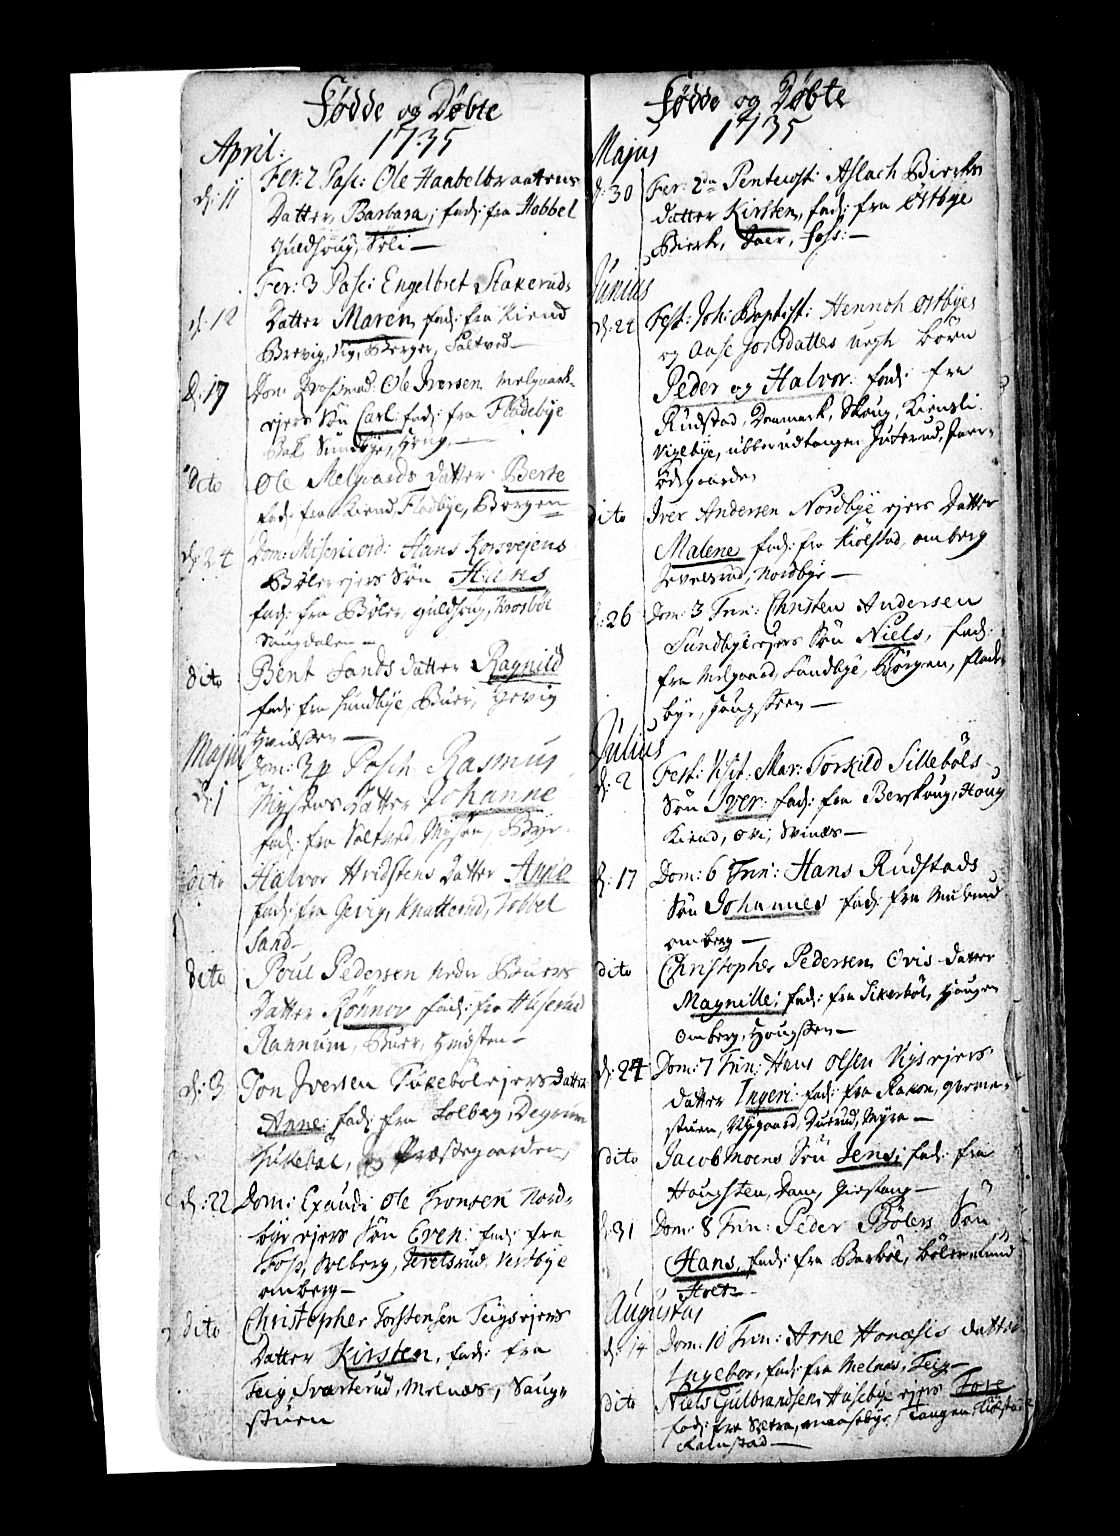 Fødde og Døbte
1735
April:
d: 11 Fer: 2 Pasc: Ole Haabelbraatens
Datter Barbara; fad: fra Hobbel
Guldhoug, Soli
Fer: 3 Pasc: Engelbret Stakeruds
d: 12 Datter Maren, fad: fra Kiend
Brevig, Vig, Berger, Saltved
d: 17 Dom: Qvasimod: Ole Iversen Melgaards-
ejers Søn Carl: fad: fra Fladebye
Bak, Sundbye, Houg,
dito Ole Melgaards datter Berte
fad: fra Kiend, Fladbye, Børgen
d: 24 Dom: Misericord: Hans Korsvejens
Bølerejers Søn Hans
fad: fra Bøler, Guldhoug, Krosbøl
Saugdalen
dito Bent Sands datter Ragnild
fad: fra Sundbye, Buer, Gevig
Hvidsten
Majus Dom: 3 p Pasch Rasmus
d: 1 Mysens Datter Johanne
fad: fra Saltved, Mysen,
dito Halvor Hvidstens Datter Anne
fad: fra Gevig, Knatterud, Tobbel
Sand
dito Poul Pedersen nedre Buers
Datter Rønnov fad: fra Huserud
Ramnum, Buer, Hvidsten
d: 3 Jon Iversen Tukebølejers datter
Anne: fad: fra Solberg, Degrum
og Præstegaarden
d: 22 Dom: Exaudi Ole Tronsen Nord-
bye ejers Søn Even: fad: fra
Foss, Solberg, Jevelsrud, Vestbye
omberg
dito Christopher Torstensen Teigs ejers
Datter Kirsten, fad: fra
Teig, Svarterud, Melnæs, Saug-
stuen
Fødde og Døbte
1735
Majus
d: 30 Fer: 2da Pentecost: Aslach Bierks
datter Kirsten, fad: fra Østbye
Bierk, Foss:
Junius
d: 24 Fest: Joh: Baptist: Henrich Østbyes
og Aase Jonsdatters uegte børn
Peder og Halvor: fad: fra
Rudstad, Dammerk, Skoug, Kiensli
Vigebye, ubberudtangen Juterud,
Ødegaarden
dito Iver Andersen Nordbye ejers Datter
Malene fad: fra Kiølstad, omberg
Jevelsrud, Nordbye
d: 26 Dom: 3 Trin: Christen Andersen
Sundbye ejers Søn Niels, fad:
fra Melgaard, Sundbye, Børgen, Flade-
bye, Hougsteen
Julius
d: 2 Fest: Visit: Mar: Torkild Sillebøls
Søn Iver: fad: fra Berskoug, Houg
Kiend, Ovi, Svinæs
d: 17 Dom: 6 Trin: Hans Rudstads
Søn Johannes fad: fra Mulerud
omberg
dito Christopher Pedersen Ovis datter
Magnille; fad: fra Sikerbøl, Hougen
Omberg, Hougsten
d: 24 Dom: 7 Trin: Hans Olsen Vigs ejers
datter Ingeri: fad: fra Ramm,
stuen, Nygaard, Duerud, Myra
dito Jacob Moens Søn Jens; fad: fra
Hougsten, Dam, Giestang
d: 31 Dom: 8 Trin: Peder Bølers Søn
Hans, fad: fra Barbøl, Bøler,
Holt
Augustus
d: 14 Dom: 10 Trin: Arne Honæsis datter
Ingebor, fad: fra Melnæs, Teig
dito Niels Gulbrandsen Husebye ejers Tore
fad: fra Sætra, Tangen, Kiølstad
Ramstad